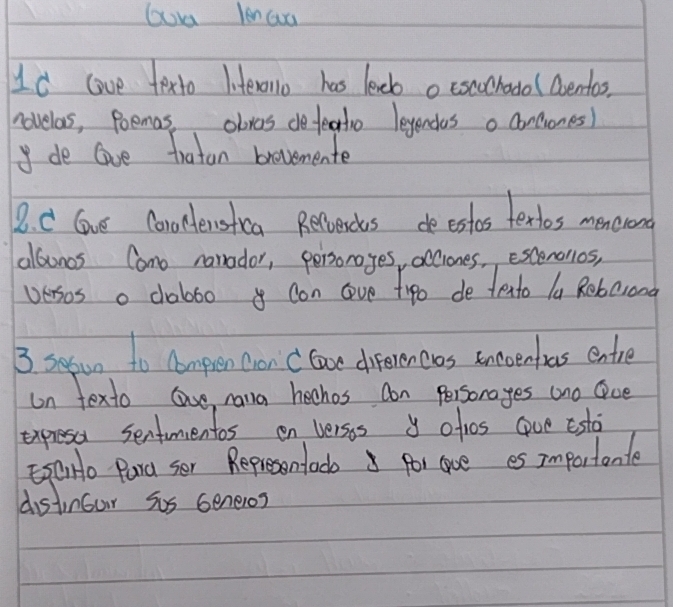 Guia lengua
1 ¿ Que texto literario has leido o Escuchado ( Cuentos,
novelas, Poemas, obras de teatro leyendas o Canciones)
y de Que tratan brevemente
2. ¿ Que Caracteristica Recuerdas de Estos textos menciona
alGunos Como narrador, personages, acciones, Escenarios,
Versos o dialoGo y Con Que tipo de texto la Relaciona
3 seGun tu Comprencion ¿ Que diferencias Encuentras entre
un texto Que narra hechos Con Personages uno Que
Expresa sentimientos en versos y otros Que Está
Escrito Para Ser Representado y Por que es Importante
distinGuir Sus Generos